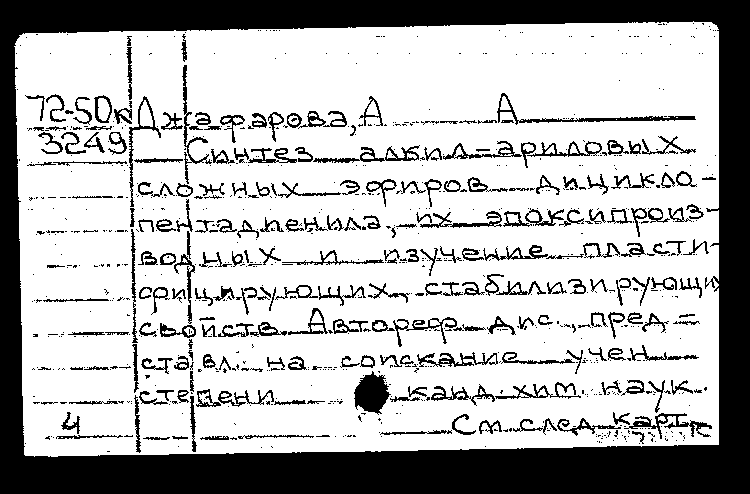 72-50к Джафарова, А А
3249 Синтез алкил-ариловых
сложных эфиров дицикло-
пентадиенила, их эпоксипроиз-
водных и изучение пласти-
фицирующих, стабилизирующих
свойств. Автореф. дис., пред=
ставл. на соискание учен.
степени канд. хим. наук.
4 См. след. карт.